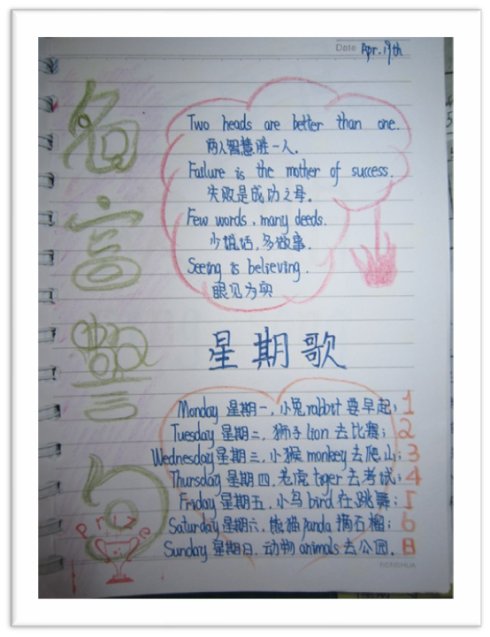 Date Apr. 19th
名言警句
Two heads are better than one.
两人智慧胜一人.
Failure is the mother of success.
失败是成功之母.
Few words, many deeds.
少说话,多做事.
Seeing is believing.
眼见为实
星期歌
Monday 星期一,小兔rabbit要早起; 1
Tuesday 星期二,狮子lion去比赛; 2
Wednesday 星期三,小猴monkey去爬山; 3
Thursday 星期四,老虎tiger去考试; 4
Friday 星期五,小鸟bird在跳舞; 5
Saturday 星期六,熊猫panda摘石榴; 6
Sunday 星期日,动物animals去公园. 日
Prize
RONGHUA